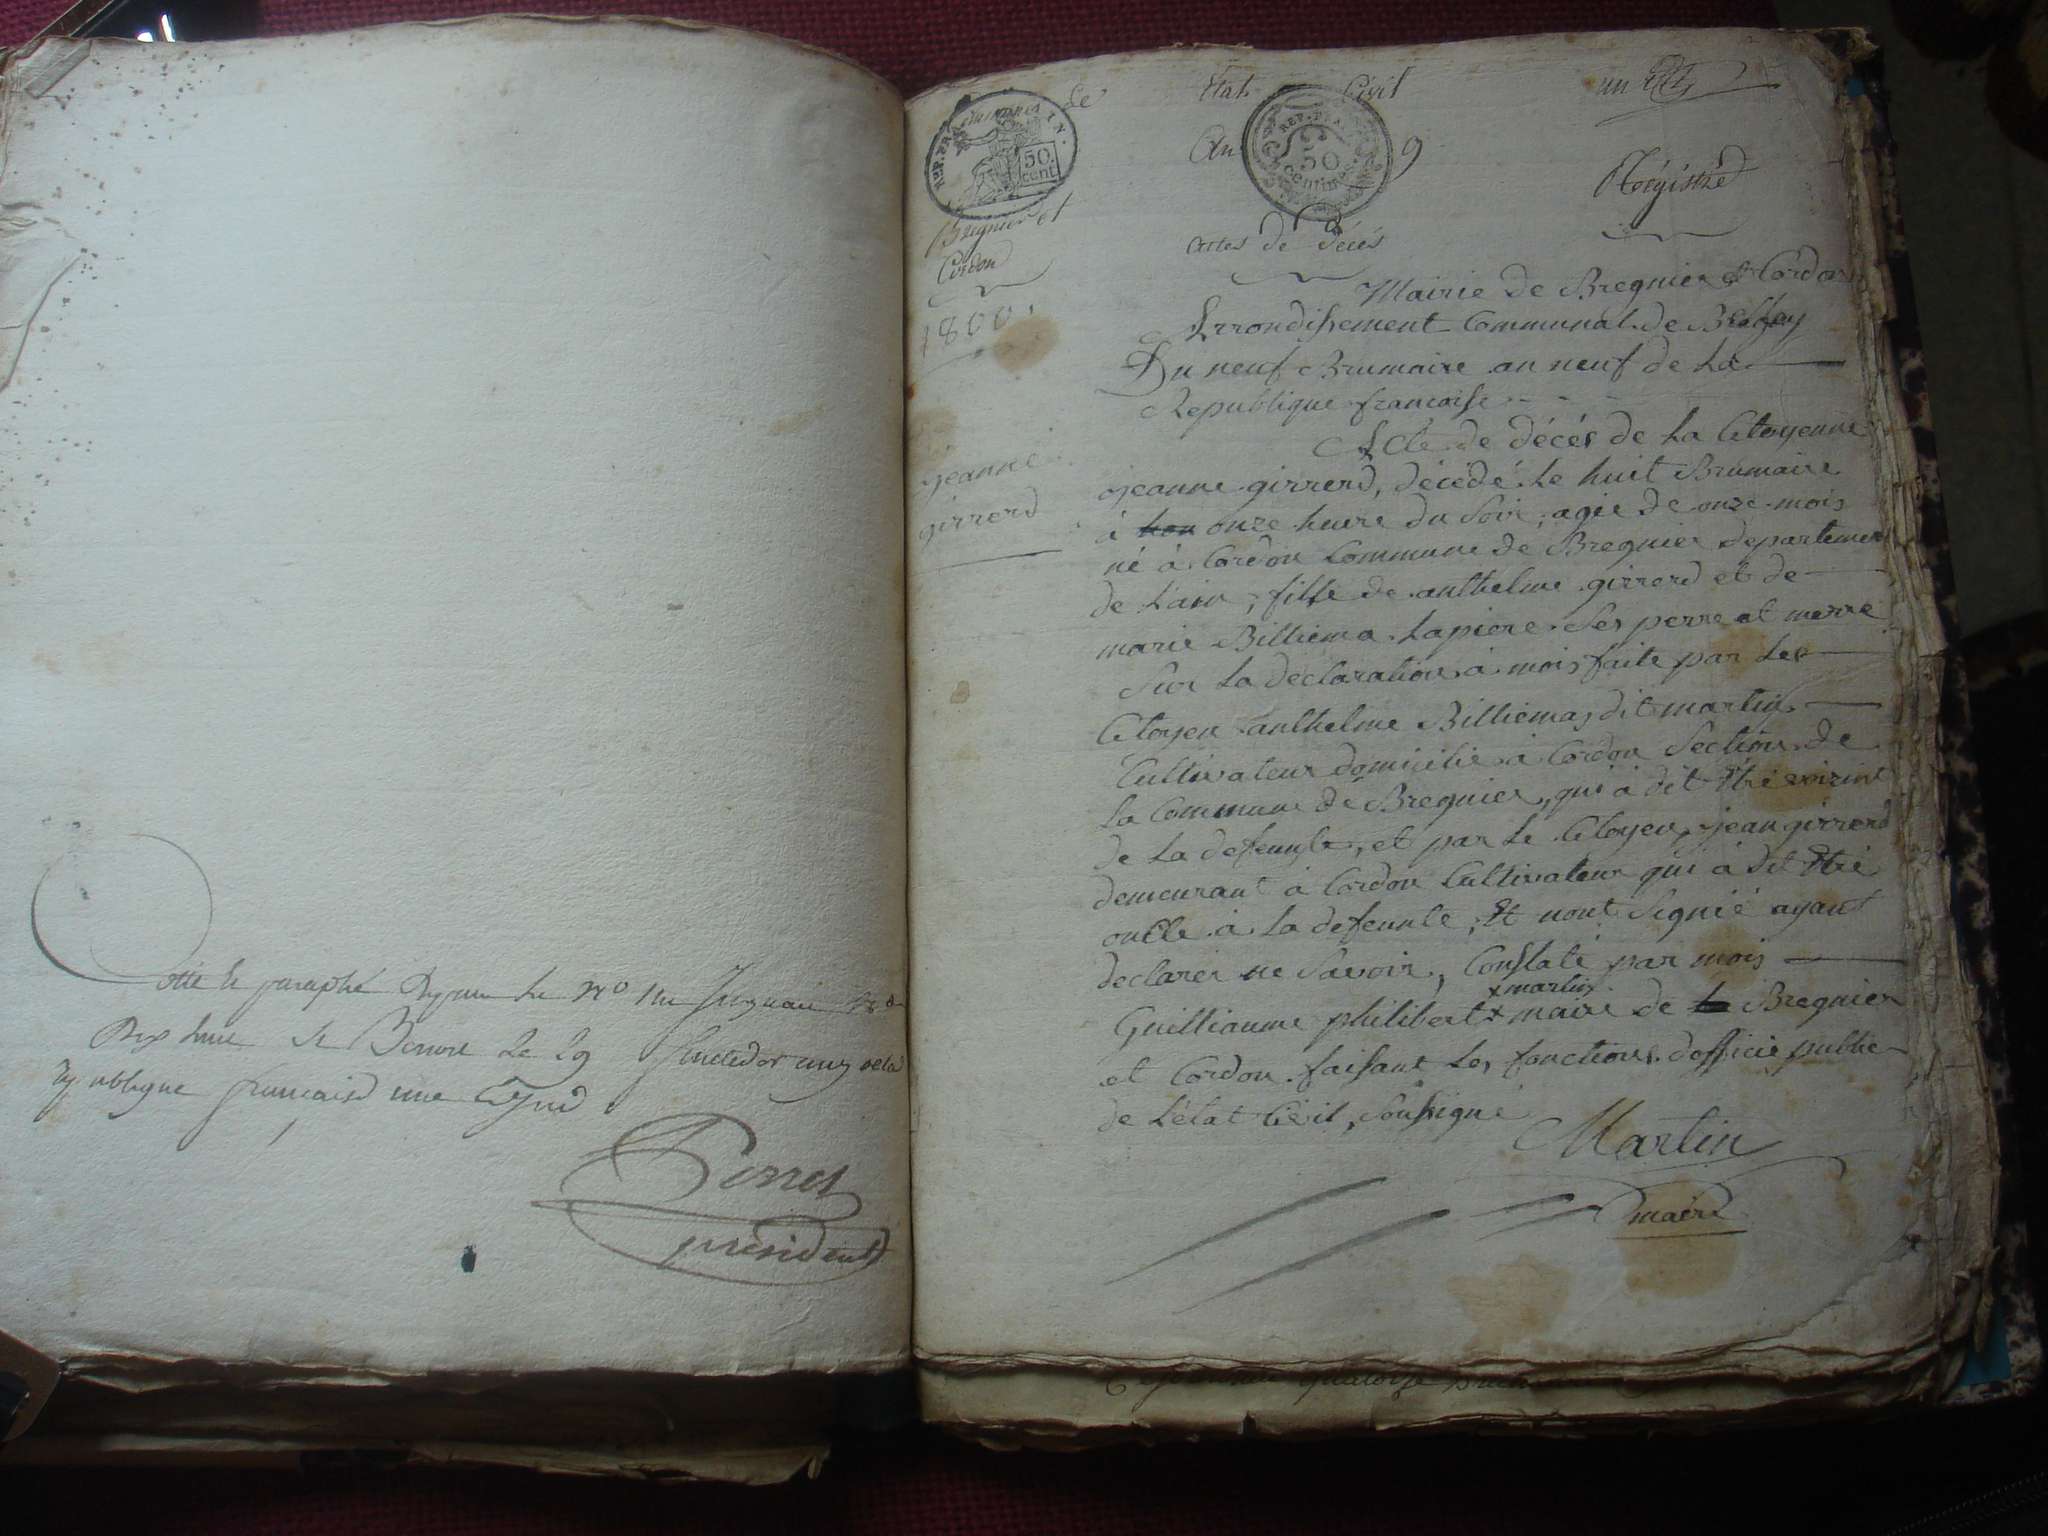 Cotté et paraphé
République française une
Perret
président
de
Etat Civil
un
REP. FRA. 50 cent.
REP. FRA. 50 centimes
An 9
Régistre
Bregnier et
Cordon
actes de Décés
1800
Mairie de Bregnier et Cordon
Arrondissement Communal de Belley
Du neuf Brumaire an neuf de La
Republique francaise
Acte de décés de La Citoyenne
jeanne
girrerd
jeanne girrerd, décédé Le huit Brumaire
à onze heure du Soir, agée de onze mois
né à Cordon Commune de Bregnier departemen
de Lain, fille de anthelme girrerd et de
marie Billiema Lapierre Ses perre et merre
Sur La déclaration à mois faite par Le
Citoyen anthelme Billiemas dit martin
Cultivateur domicilié à Cordon Section de
La Commune de Bregnier, qui à dit Etre voizint
de La defeunte, et par Le Citoyen jean girrerd
demeurant à Cordon Cultivateur qui à dit Etre
oncle à La defeunte, Et nont Signié ayant
declarer ne Savoir, Constaté par mois
x martin x
Guilliaume philibert x maire de Bregnier
et Cordon faisant Les fonctions dofficié public
de Létat Civil, Soussigné
Martin
maire